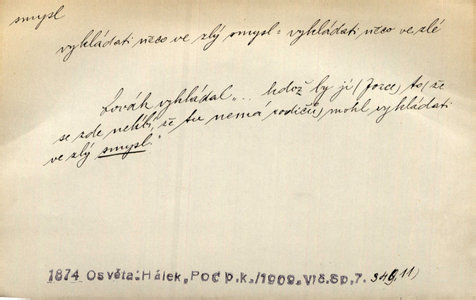 smysl
vykládati něco ve zlý smysl = vykládati něco ve zlé
Novák vykládal „... kdož by jí (Jozce) to, že
se zde nelíbí, že tu nemá rodičů, mohl vykládati
ve zlý smysl."
1874 Osvěta: Hálek, „Pod p.k./1909, Vlč. Sp, 7. 346, 11)